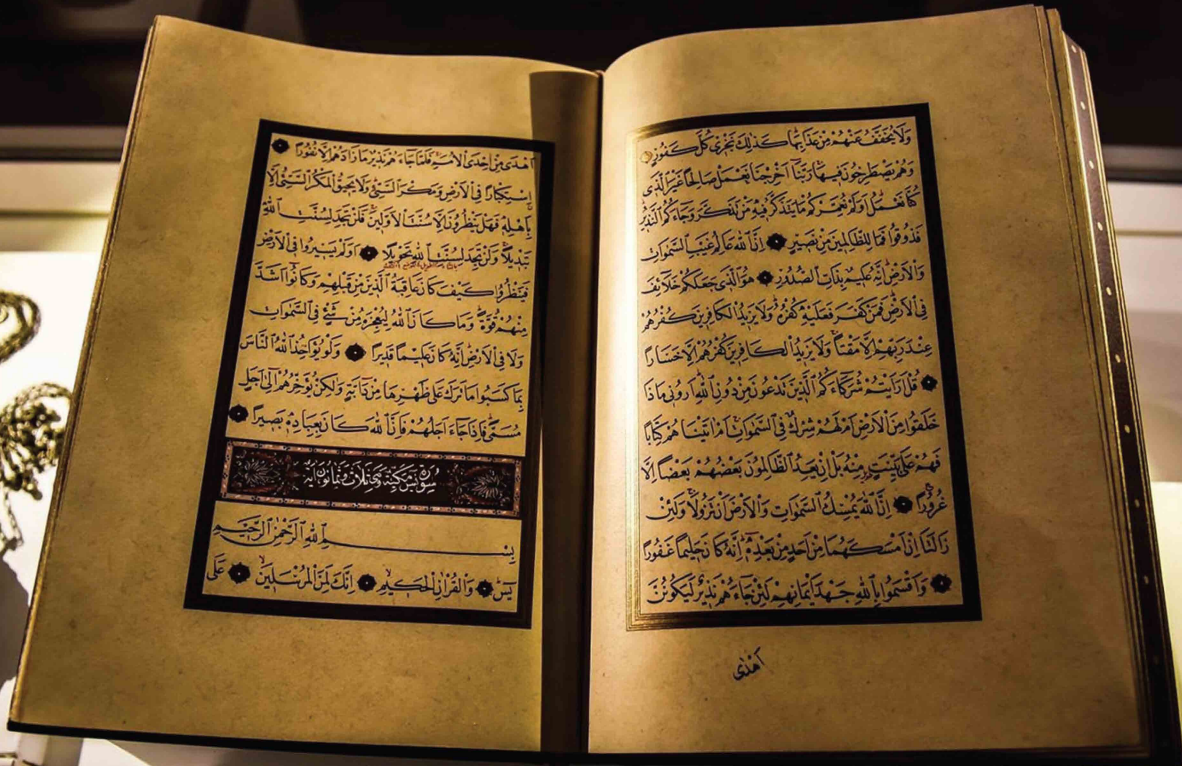 وَلَا يُخَفَّفُ عَنْهُمْ مِنْ عَذَابِهَا كَذٰلِكَ نَجْزِي كُلَّ كَفُورٍ
وَهُمْ يَصْطَرِخُونَ فِيهَا رَبَّنَا اَخْرِجْنَا نَعْمَلْ صَالِحًا غَيْرَ الَّذِي
كُنَّا نَعْمَلُ اَوَلَمْ نُعَمِّرْكُمْ مَا يَتَذَكَّرُ فِيهِ مَنْ تَذَكَّرَ وَجَاءَكُمُ النَّذِيرُ
فَذُوقُوا فَمَا لِلظَّالِمِينَ مِنْ نَصِيرٍ اِنَّ اللهَ عَالِمُ غَيْبِ السَّمٰوَاتِ
وَالْاَرْضِ اِنَّهُ عَلِيمٌ بِذَاتِ الصُّدُورِ هُوَ الَّذِي جَعَلَكُمْ خَلَائِفَ
فِي الْاَرْضِ فَمَنْ كَفَرَ فَعَلَيْهِ كُفْرُهُ وَلَا يَزِيدُ الْكَافِرِينَ كُفْرُهُمْ
عِنْدَ رَبِّهِمْ اِلَّا مَقْتًا وَلَا يَزِيدُ الْكَافِرِينَ كُفْرُهُمْ اِلَّا خَسَارًا
قُلْ اَرَاَيْتُمْ شُرَكَاءَكُمُ الَّذِينَ تَدْعُونَ مِنْ دُونِ اللهِ اَرُونِي مَاذَا
خَلَقُوا مِنَ الْاَرْضِ اَمْ لَهُمْ شِرْكٌ فِي السَّمٰوَاتِ اَمْ اٰتَيْنَاهُمْ كِتَابًا
فَهُمْ عَلٰى بَيِّنَتٍ مِنْهُ بَلْ اِنْ يَعِدُ الظَّالِمُونَ بَعْضُهُمْ بَعْضًا اِلَّا
غُرُورًا اِنَّ اللهَ يُمْسِكُ السَّمٰوَاتِ وَالْاَرْضَ اَنْ تَزُولَا وَلَئِنْ
زَالَتَا اِنْ اَمْسَكَهُمَا مِنْ اَحَدٍ مِنْ بَعْدِهِ اِنَّهُ كَانَ حَلِيمًا غَفُورًا
وَاَقْسَمُوا بِاللهِ جَهْدَ اَيْمَانِهِمْ لَئِنْ جَاءَهُمْ نَذِيرٌ لَيَكُونُنَّ
اَهْدٰى
اَهْدٰى مِنْ اِحْدَى الْاُمَمِ فَلَمَّا جَاءَهُمْ نَذِيرٌ مَا زَادَهُمْ اِلَّا نُفُورًا
اِسْتِكْبَارًا فِي الْاَرْضِ وَمَكْرَ السَّيِّئِ وَلَا يَحِيقُ الْمَكْرُ السَّيِّئُ اِلَّا
بِاَهْلِهِ فَهَلْ يَنْظُرُونَ اِلَّا سُنَّتَ الْاَوَّلِينَ فَلَنْ تَجِدَ لِسُنَّتِ اللهِ
تَبْدِيلًا وَلَنْ تَجِدَ لِسُنَّتِ اللهِ تَحْوِيلًا اَوَلَمْ يَسِيرُوا فِي الْاَرْضِ
فَيَنْظُرُوا كَيْفَ كَانَ عَاقِبَةُ الَّذِينَ مِنْ قَبْلِهِمْ وَكَانُوا اَشَدَّ
مِنْهُمْ قُوَّةً وَمَا كَانَ اللهُ لِيُعْجِزَهُ مِنْ شَيْءٍ فِي السَّمٰوَاتِ
وَلَا فِي الْاَرْضِ اِنَّهُ كَانَ عَلِيمًا قَدِيرًا وَلَوْ يُؤَاخِذُ اللهُ النَّاسَ
بِمَا كَسَبُوا مَا تَرَكَ عَلٰى ظَهْرِهَا مِنْ دَابَّةٍ وَلٰكِنْ يُؤَخِّرُهُمْ اِلٰى اَجَلٍ
مُسَمًّى فَاِذَا جَاءَ اَجَلُهُمْ فَاِنَّ اللهَ كَانَ بِعِبَادِهِ بَصِيرًا
سُورَةُ يٰسٓ مَكِّيَّةٌ وَهِيَ ثَلَاثٌ وَثَمَانُونَ اٰيَة
بِسْمِ اللهِ الرَّحْمٰنِ الرَّحِيمِ
يٰسٓ وَالْقُرْاٰنِ الْحَكِيمِ اِنَّكَ لَمِنَ الْمُرْسَلِينَ عَلٰى